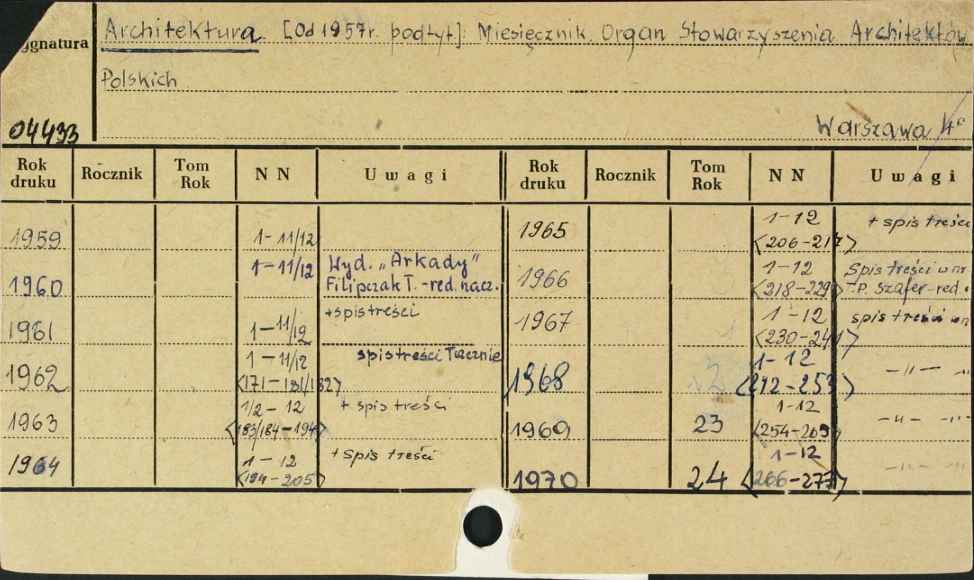 Architektura. [Od 1957r. podtyt]: Miesięcznik. Organ Stowarzyszenia Architektów
Polskich.
Warszawa 4°
ygnatura
04433
Rok druku Rocznik Tom Rok N N Uwagi Rok druku Rocznik Tom Rok N N Uwagi
1959 1-11/12
1960 1-11/12 Wyd. „Arkady”
Filipczak T. -red. nacz.
1961 1-11/12 + spis treści
1962 1-11/12 spis treści Tłącznie
<171-181/182>
1963 1/2-12 + spis treści
<183/184-194>
1964 1-12 + spis treści
<194-205>
1965 1-12 + spis treści
<206-217>
1966 1-12 Spis treści w nr
<218-229> T.P. Szafer-red.
1967 1-12 spis treści w n
<230-241>
1968 1-12 -„- -„-
<242-253>
1969 23 1-12 -„- -„-
<254-265>
1970 24 1-12 -„- -„-
<266-277>